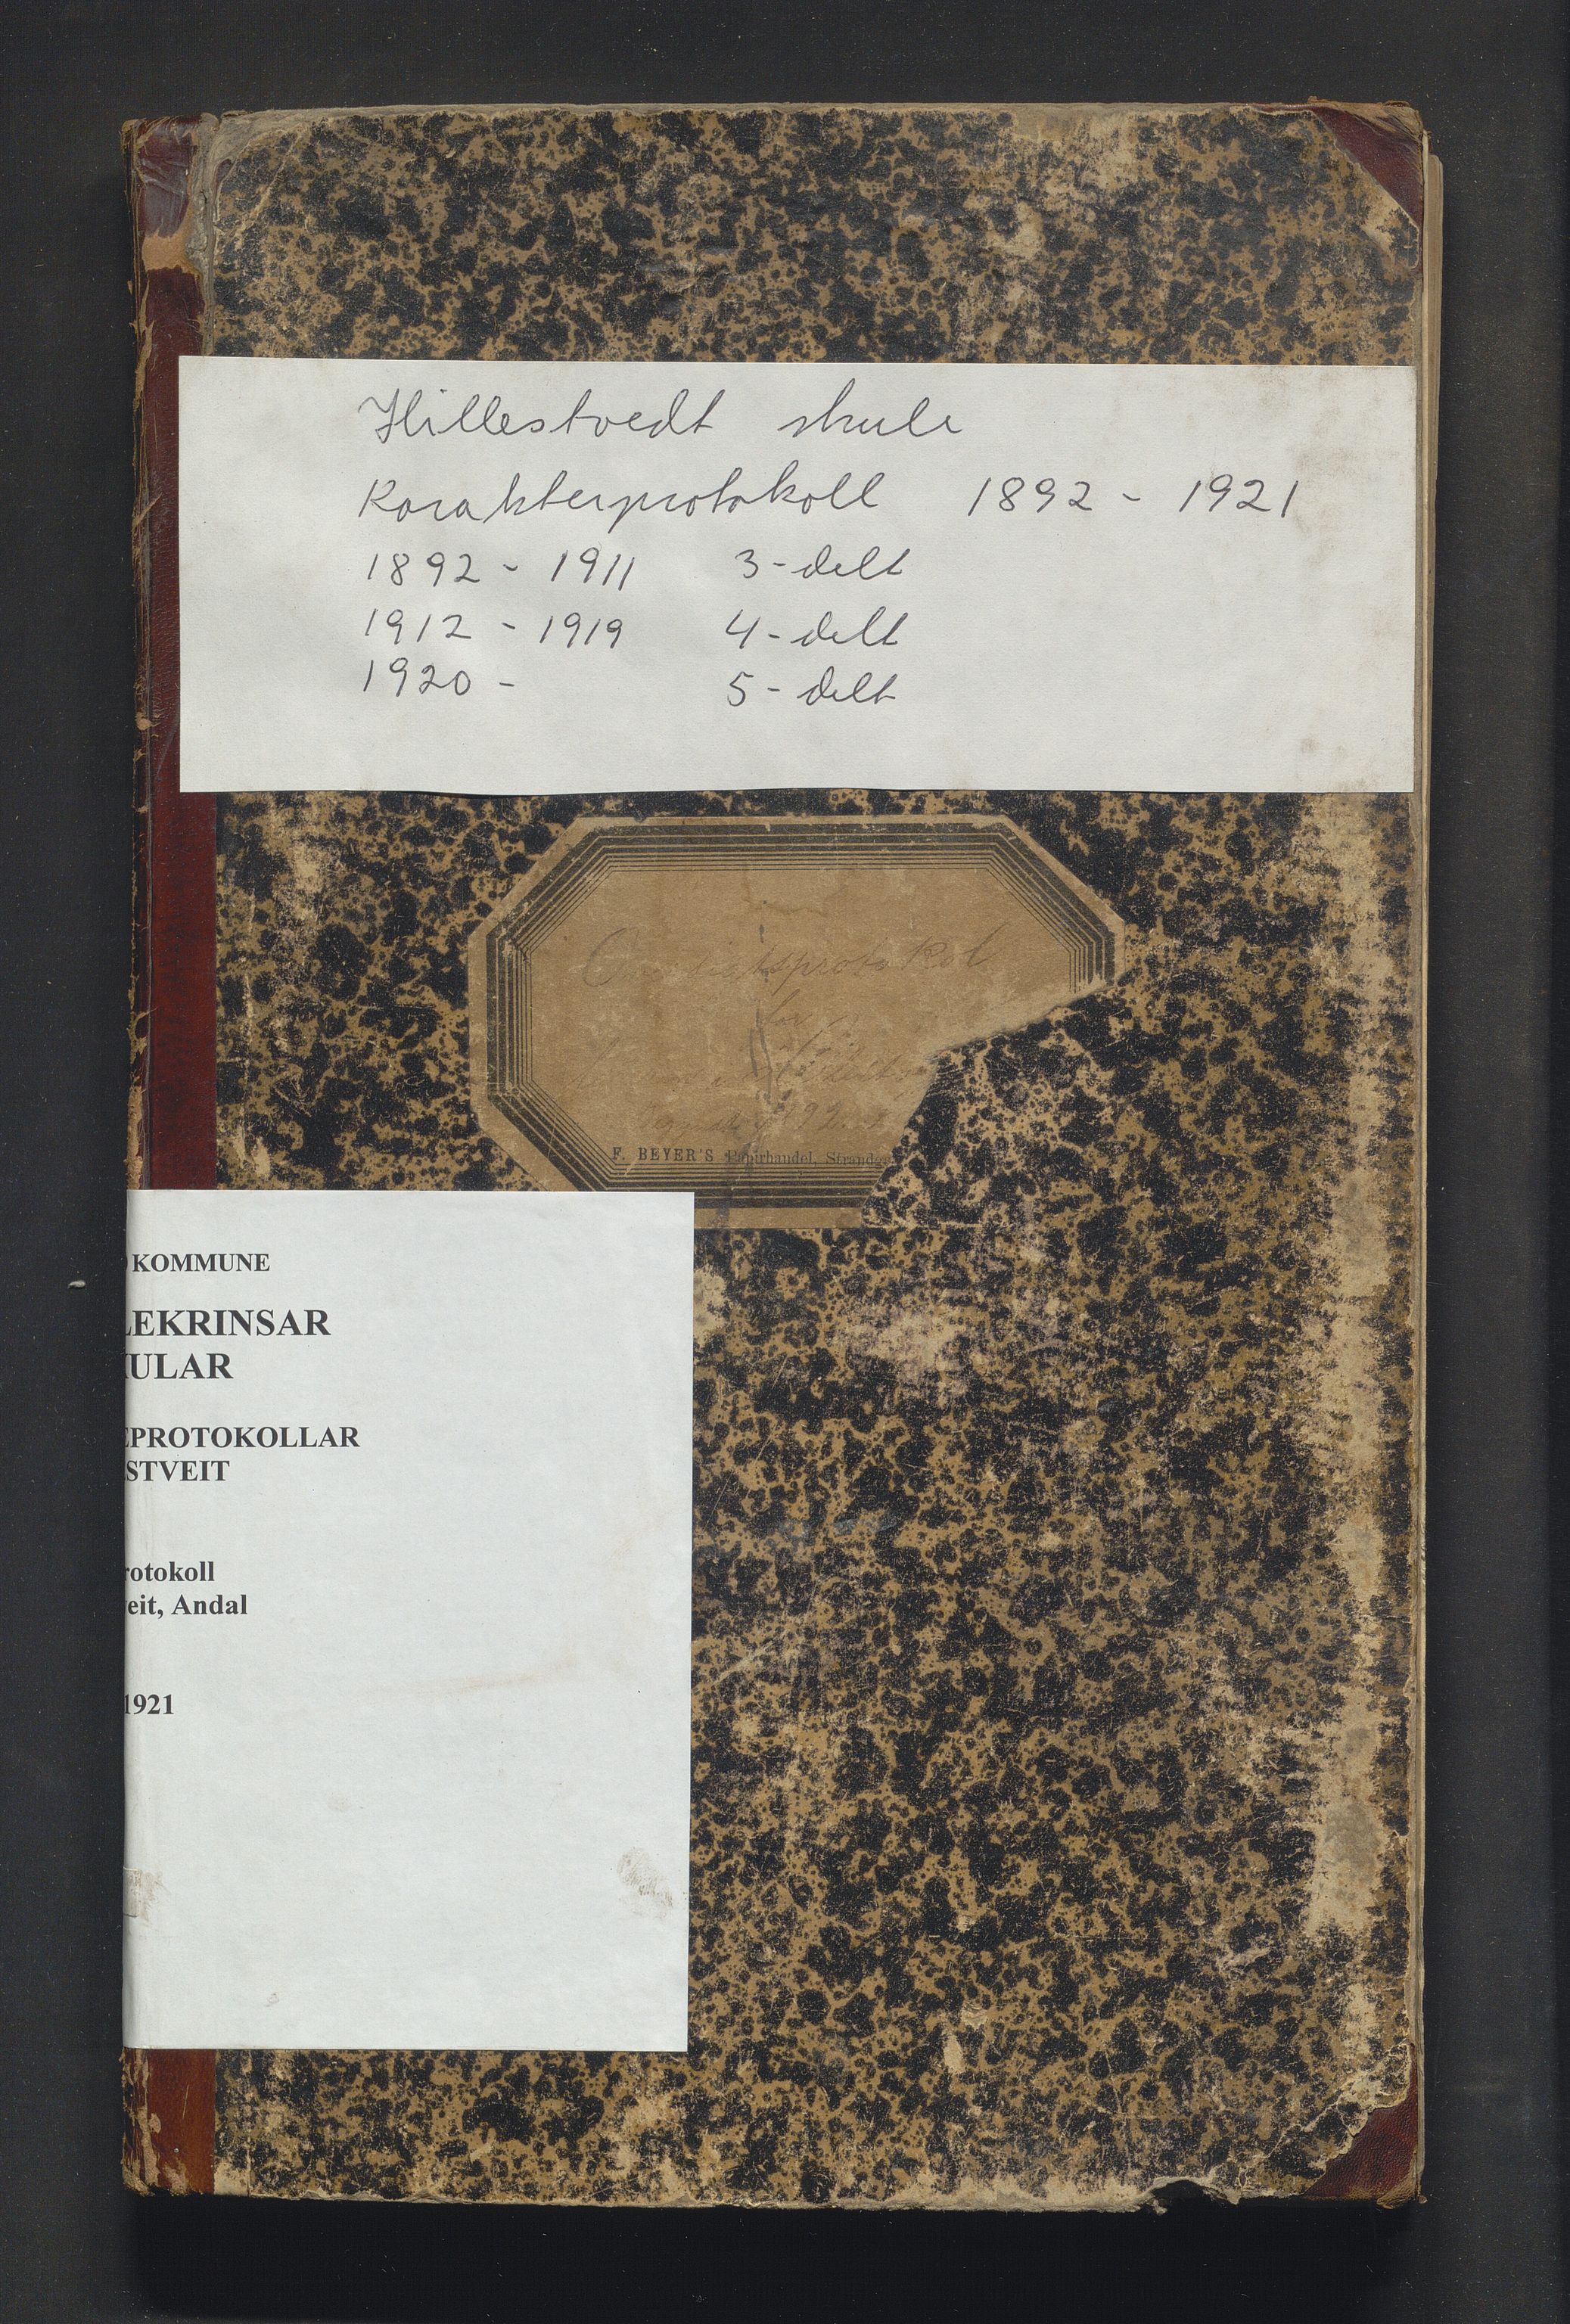 Hillestvedt skule
Karakterprotokoll 1892 - 1921
1892 - 1911 3-delt
1912 - 1919 4-delt
1920 - 5-delt
for
F. BEYER'S Papirhandel, Strandg
KOMMUNE
LEKRINSAR
ULAR
PROTOKOLLAR
STVEIT
rotokoll
eit, Andal
1921